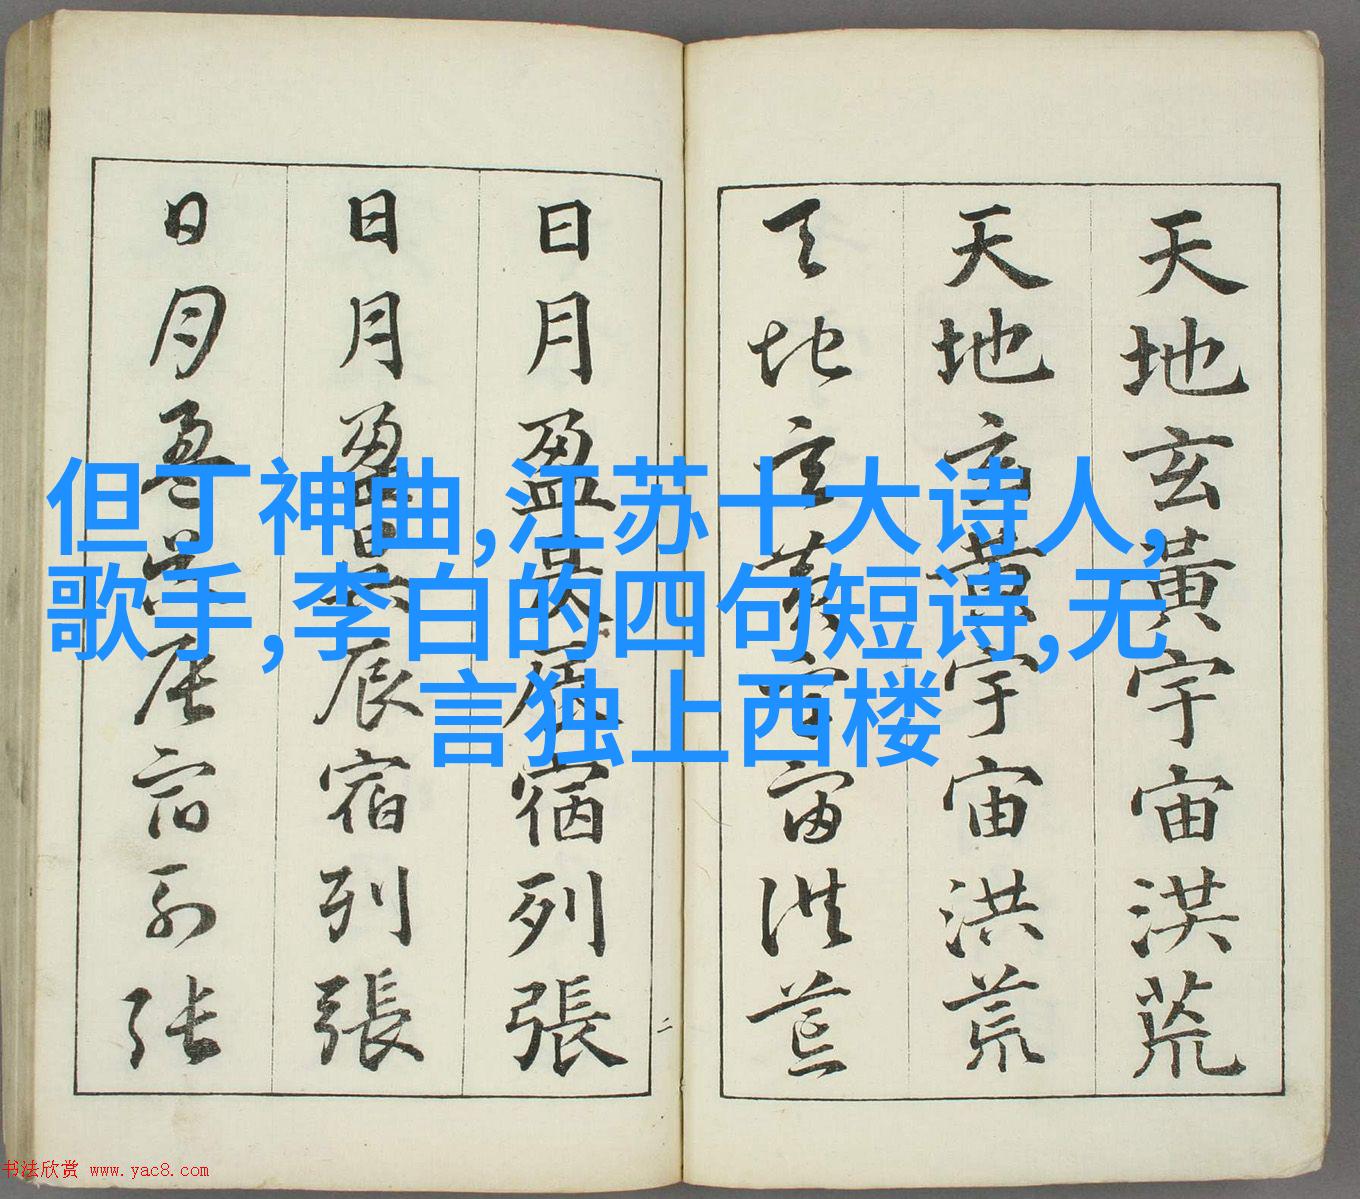 天地玄黃宇宙洪荒
天地玄黃宇宙洪荒
天地玄黃宇宙洪荒
日月盈昃辰宿列張
日月盈昃辰宿列張
日月盈昃辰宿列张
二
但丁神曲,江苏十大诗人,
歌手,李白的四句短诗,无
言独上西楼
书法欣赏 www.yac8.com